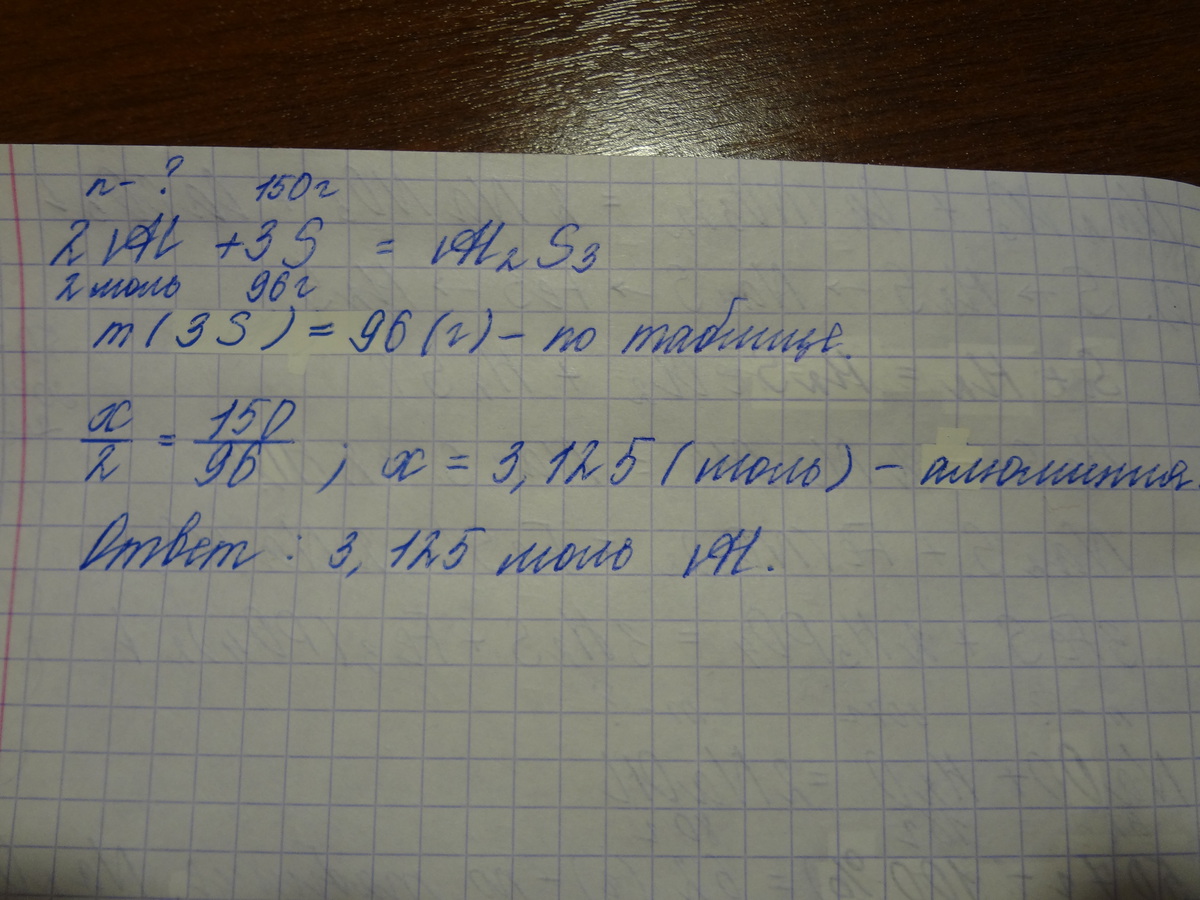 n - ? 150 г
2 Al + 3 S = Al₂S₃
2 моль 96 г
m (3 S) = 96 (г) – по таблице.
x/2 = 150/96 ; x = 3,125 (моль) – алюминия.
Ответ : 3, 125 моль Al.